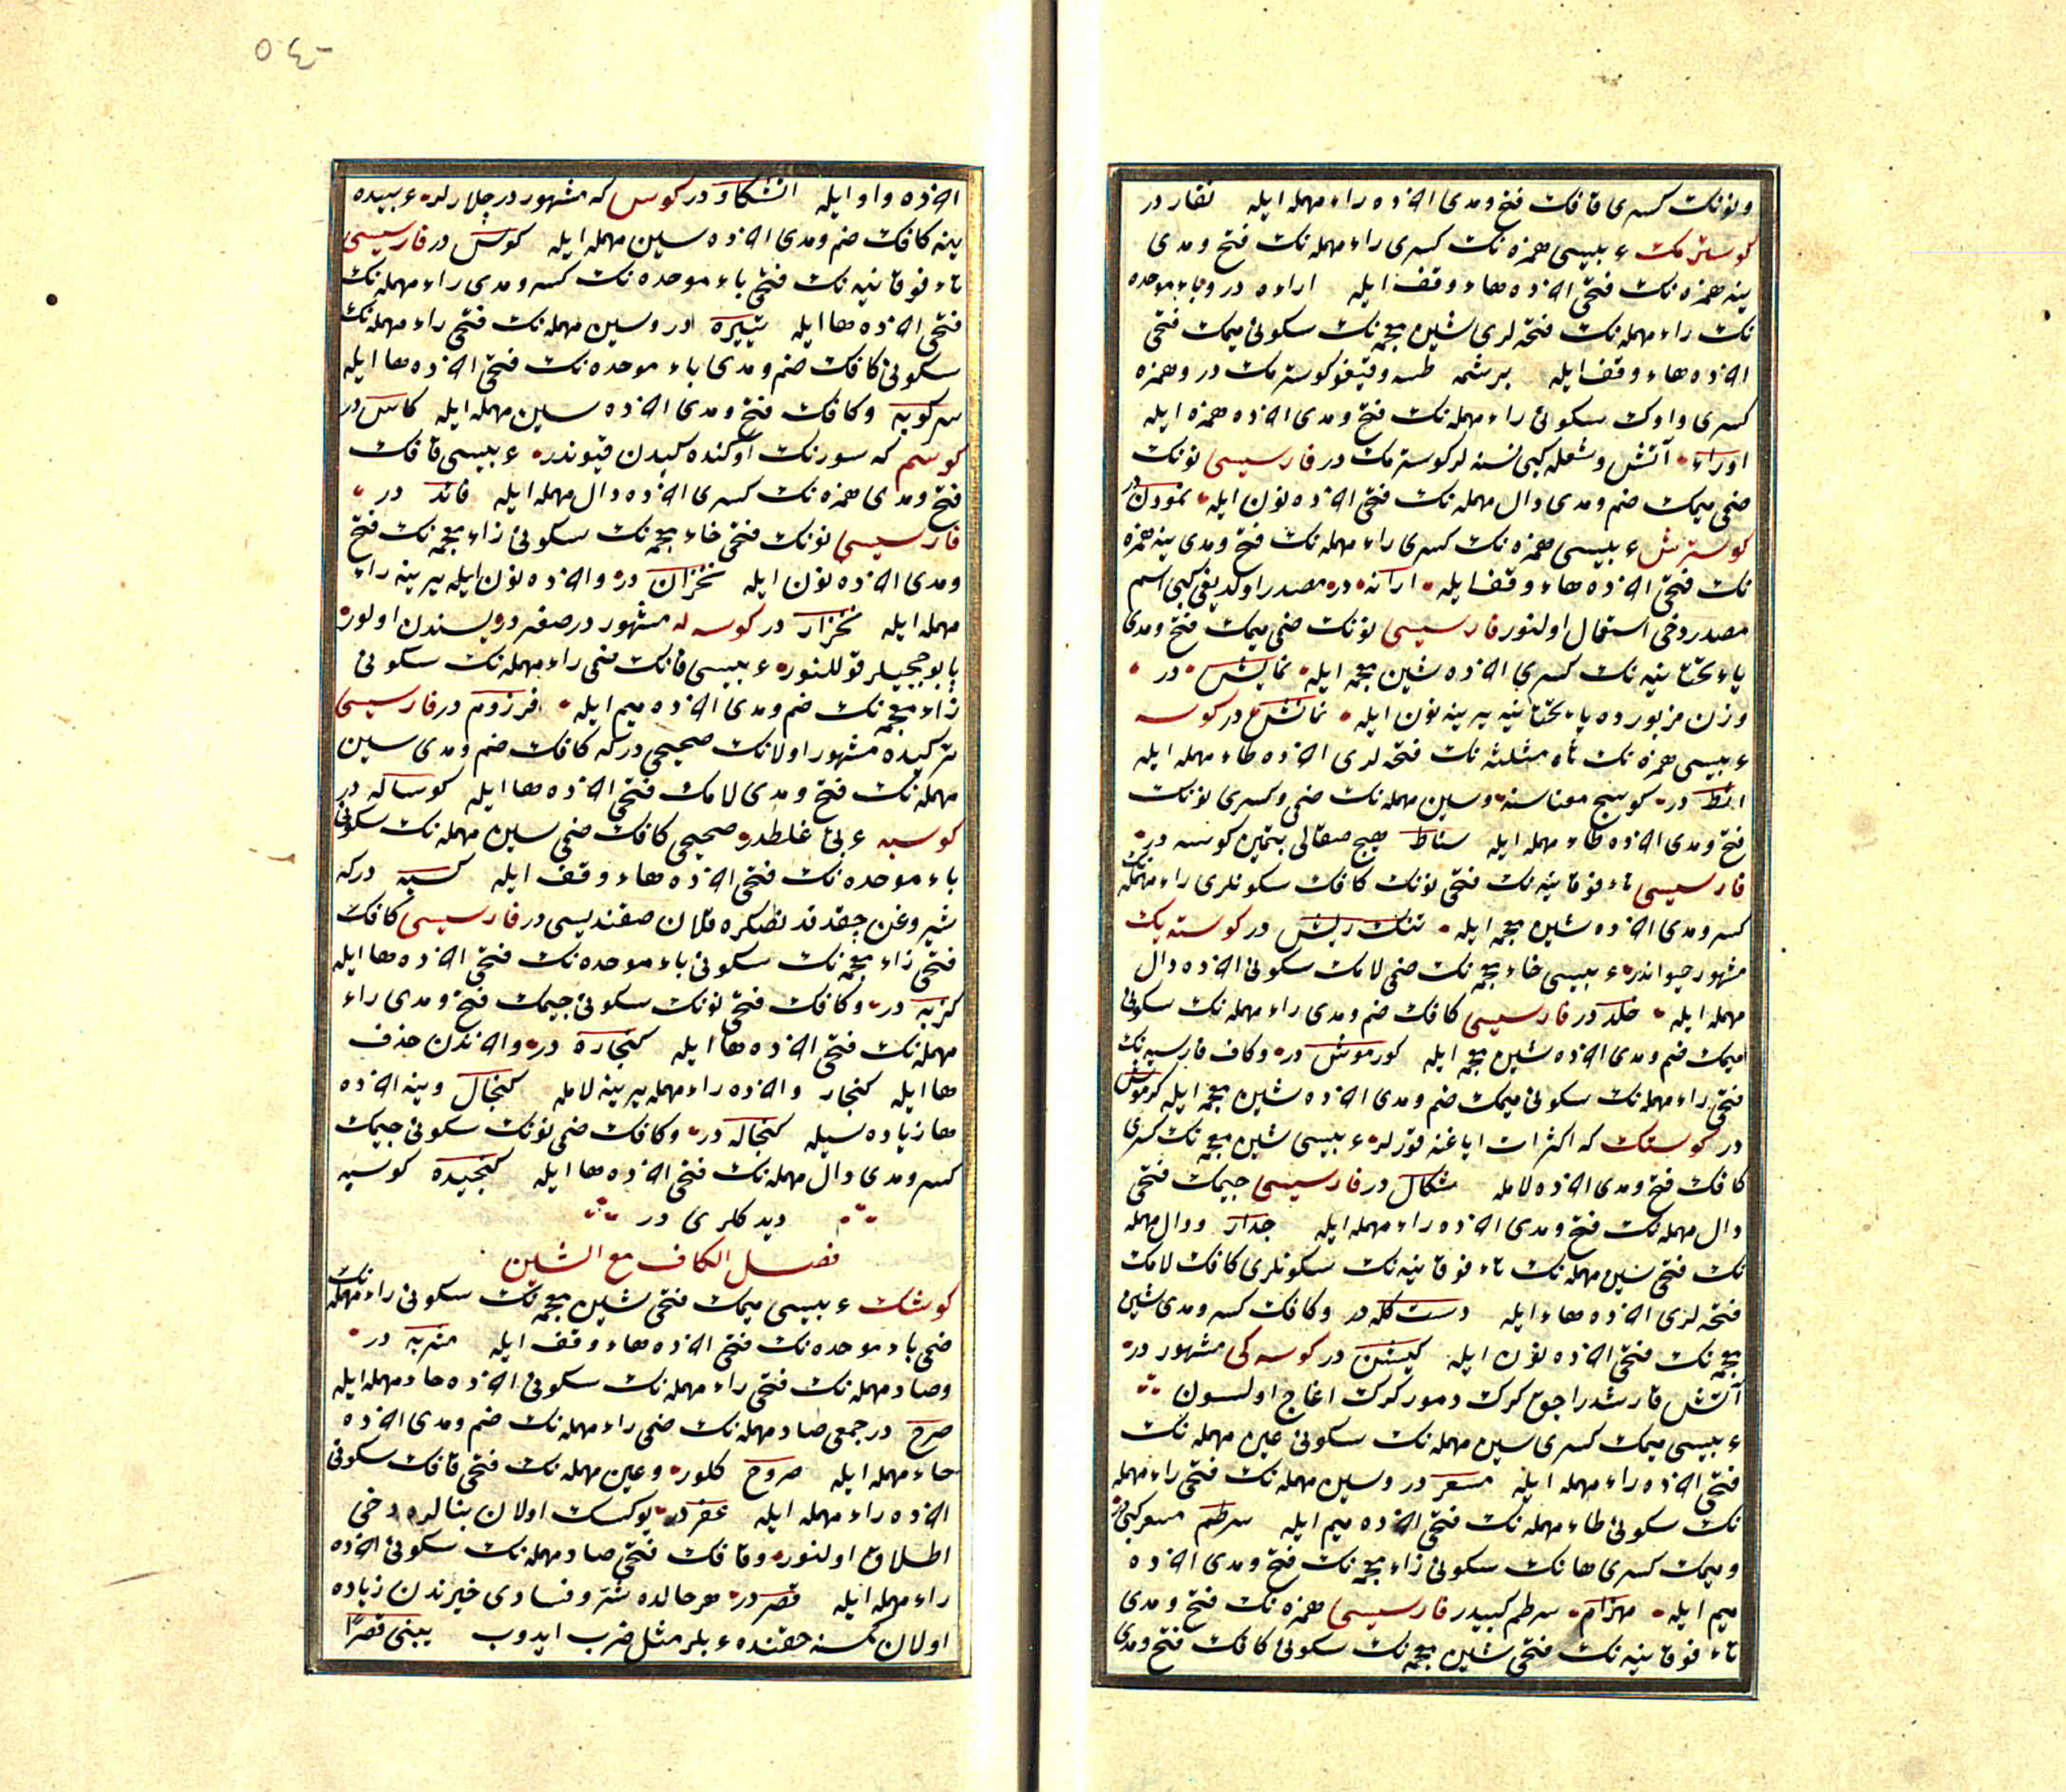 ونونك كسرى قافك فتح ومدى آخرده راء مهمله ايله نقار در
كوسترمك عربيسى همزه نك كسرى راء مهمله نك فتح ومدى
ينه همزه نك فتحى آخرده هاء وقف ايله اراءه در وباء موحده
نك راء مهمله نك فتحه لرى شين معجمه نك سكونى ميمك فتحى
آخرده هاء وقف ايله برشمه كوسترمك در وهمزه
كسرى واوك سكونى راء مهمله نك فتح ومدى آخرده همزه ايله
اوراء آتش وشعله كبى نسنه لر كوسترمك در فارسيسى نونك
ضمى ميمك ضم ومدى دال مهمله نك فتحى آخرده نون ايله نمودن در
كوسترش عربيسى همزه نك كسرى راء مهمله نك فتح ومدى ينه همزه
نك فتحى آخرده هاء وقف ايله ارائه در مصدر اولديغى كبى اسم
مصدر دخى استعمال اولنور فارسيسى نونك ضمى ميمك فتح ومدى
ياء تحتانيه نك كسرى آخرده شين معجمه ايله نمايش در
وزن مزبورده ياء تحتانيه يرينه نون ايله نمانش در كوسه
عربيسى همزه نك ثاء مثلثه نك فتحه لرى آخرده طاء مهمله ايله
اثط در كوسج معناسنه وسين مهمله نك ضمى وكسرى نونك
فتح ومدى آخرده طاء مهمله ايله سناط هيچ صقالى بتمين كوسه در
فارسيسى تاء فوقانيه نك فتحى نونك كافك سكونلرى راء مهمله نك
كسر ومدى آخرده شين معجمه ايله تنك ريش در كوسته بك
مشهور حيواندر عربيسى خاء معجمه نك ضمى لامك سكونى آخرده دال
مهمله ايله خلد در فارسيسى كافك ضم ومدى راء مهمله نك سكونى
ميمك ضم ومدى آخرده شين معجمه ايله كورموش در وكاف فارسيه نك
فتحى راء مهمله نك سكونى ميمك ضم ومدى آخرده شين معجمه ايله كرموش
در كوستك كه اكثر ات اياغنه قورلر عربيسى شين معجمه نك كسرى
كافك فتح ومدى آخرده لامله شكال در فارسيسى جيمك فتحى
دال مهمله نك فتح ومدى آخرده راء مهمله ايله جدار ودال مهمله
نك فتحى سين مهمله نك تاء فوقانيه نك سكونلرى كافك لامك
فتحه لرى آخرده هاء ايله دست كله در وكافك كسر ومدى شين
معجمه نك فتحى آخرده نون ايله كيشن در كوسه كى مشهور در
آتش قارشدراجق كرك دمور كرك اغاج اولسون
عربيسى ميمك كسرى سين مهمله نك سكونى عين مهمله نك
فتحى آخرده راء مهمله ايله مسعر در وسين مهمله نك فتحى راء مهمله
نك سكونى طاء مهمله نك فتحى آخرده ميم ايله سرطم مسعر كبى در
وميمك كسرى هانك سكونى زاء معجمه نك فتح ومدى آخرده
ميم ايله مهزام سرطم كبيدر فارسيسى همزه نك فتح ومدى
تاء فوقانيه نك فتحى شين معجمه نك سكونى كافك فتح ومدى
٥٤٠
آخرده واو ايله اتشكاو در كوس كه مشهور در چلارلر عربيده
ينه كافك ضم ومدى آخرده سين مهمله ايله كوس در فارسيسى
تاء فوقانيه نك فتحى باء موحده نك كسر ومدى راء مهمله نك
فتحى آخرده ها ايله تبيره در وسين مهمله نك فتحى راء مهمله نك
سكونى كافك ضم ومدى باء موحده نك فتحى آخرده ها ايله
سركوبه وكافك فتح ومدى آخرده سين مهمله ايله كاس در
كوسم كه سورنك اوكنده كيدن قيوندر عربيسى قافك
فتح ومدى همزه نك كسرى آخرده دال مهمله ايله قائد در
فارسيسى نونك فتحى خاء معجمه نك سكونى زاء معجمه نك فتح
ومدى آخرده نون ايله نخزان در وآخرده نون ايله يرينه راء
مهمله ايله نخزار در كوسه له مشهور در صغر دريسندن اولور
پابوججيلر قوللنور عربيسى فانك ضمى راء مهمله نك سكونى
زاء معجمه نك ضم ومدى آخرده ميم ايله فرزوم در فارسيسى
تركيده مشهور اولانك صحيحى در كه كافك ضم ومدى سين
مهمله نك فتح ومدى لامك فتحى آخرده ها ايله كوساله در
كوسبه عربى غلطدر صحيحى كافك ضمى سين مهمله نك سكونى
باء موحده نك فتحى آخرده هاء وقف ايله كسبه در كه
شيروغن چقدقدنصكره قلان صقنديسى در فارسيسى كافك
فتحى زاء معجمه نك سكونى باء موحده نك فتحى آخرده ها ايله
كزبه در وكافك فتحى نونك سكونى جيمك فتح ومدى راء
مهمله نك فتحى آخرده ها ايله كنجاره در وآخرندن حذف
ها ايله كنجار وآخرده راء مهمله يرينه لامله كنجال وينه آخرده
ها زياده سيله كنجاله در وكافك ضمى نونك سكونى جيمك
كسر ومدى دال مهمله نك فتحى آخرده ها ايله كنجيده كوسبه
ديدكلرى در
فصل الكاف مع الشين
كوشك عربيسى ميمك فتحى شين معجمه نك سكونى راء مهمله نك
ضمى باء موحده نك فتحى آخرده هاء وقف ايله مشربه در
وصاد مهمله نك فتحى راء مهمله نك سكونى آخرده حاء مهمله ايله
صرح در جمعى صاد مهمله نك ضمى راء مهمله نك ضم ومدى آخرده
حاء مهمله ايله صروح كلور وعين مهمله نك فتحى قافك سكونى
آخرده راء مهمله ايله عقر در يوكسك اولان بنالره دخى
اطلاق اولنور وقافك فتحى صاد مهمله نك سكونى آخرده
راء مهمله ايله قصر در هر حالده شر وفسادى خيرندن زياده
اولان كمسنه حقنده عربلر مثل ضرب ايدوب يبنى قصرا